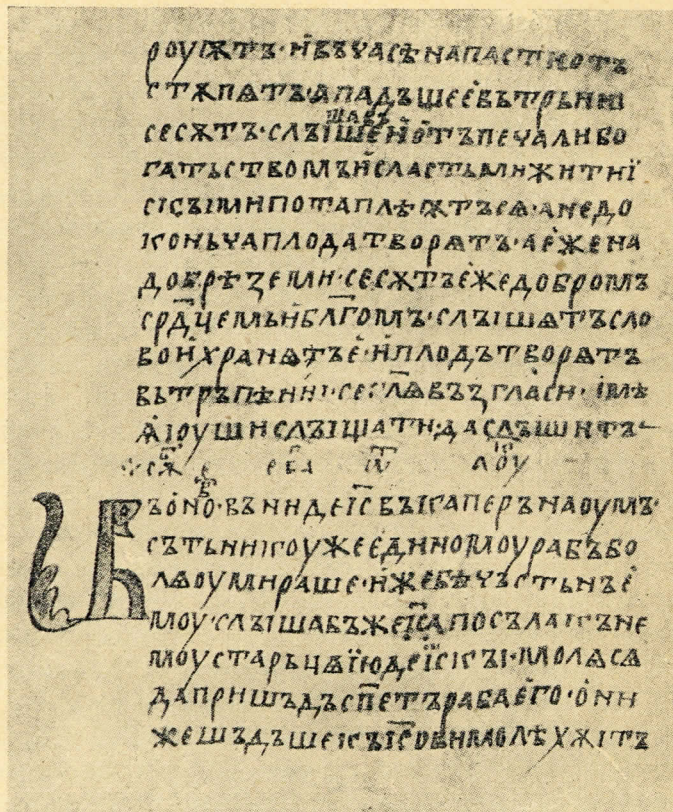 роуѭтъ· и въ часъ напасти отъ
стѫпѧтъ· а падъшее въ трьнии
се сѫтъ· слꙑшавъшеи отъ печали бо
гатьствомъ и сластьми житиі
скꙑми потаплѣѭтъсѧ· а не до
коньча плода творѧтъ· а еже на
добрѣ земи· се сѫтъ еже добромъ
срд҃цемь и бл҃гомъ· слꙑшѧтъ сло
во и хранѧтъ е· и плодъ творѧтъ
вь тръпѣнии· се гл҃ѧ възгласи· імѣ
ѩі оуши слꙑшати· да слꙑшитъ
въ оно· въниде іс҃ въ капернаоумъ·
сътьникоу же единомоу рабъ бо
лѧ оумираше· иже бѣ чъстьнъ е
моу· слꙑшавъ же іс҃а посъла къ не
моу старьцѧ їюдеїскꙑ· молѧ сѧ
да пришъдъ сп҃етъ раба его· они
же шъдъше къ іс҃ови молѣхѫ і тъ